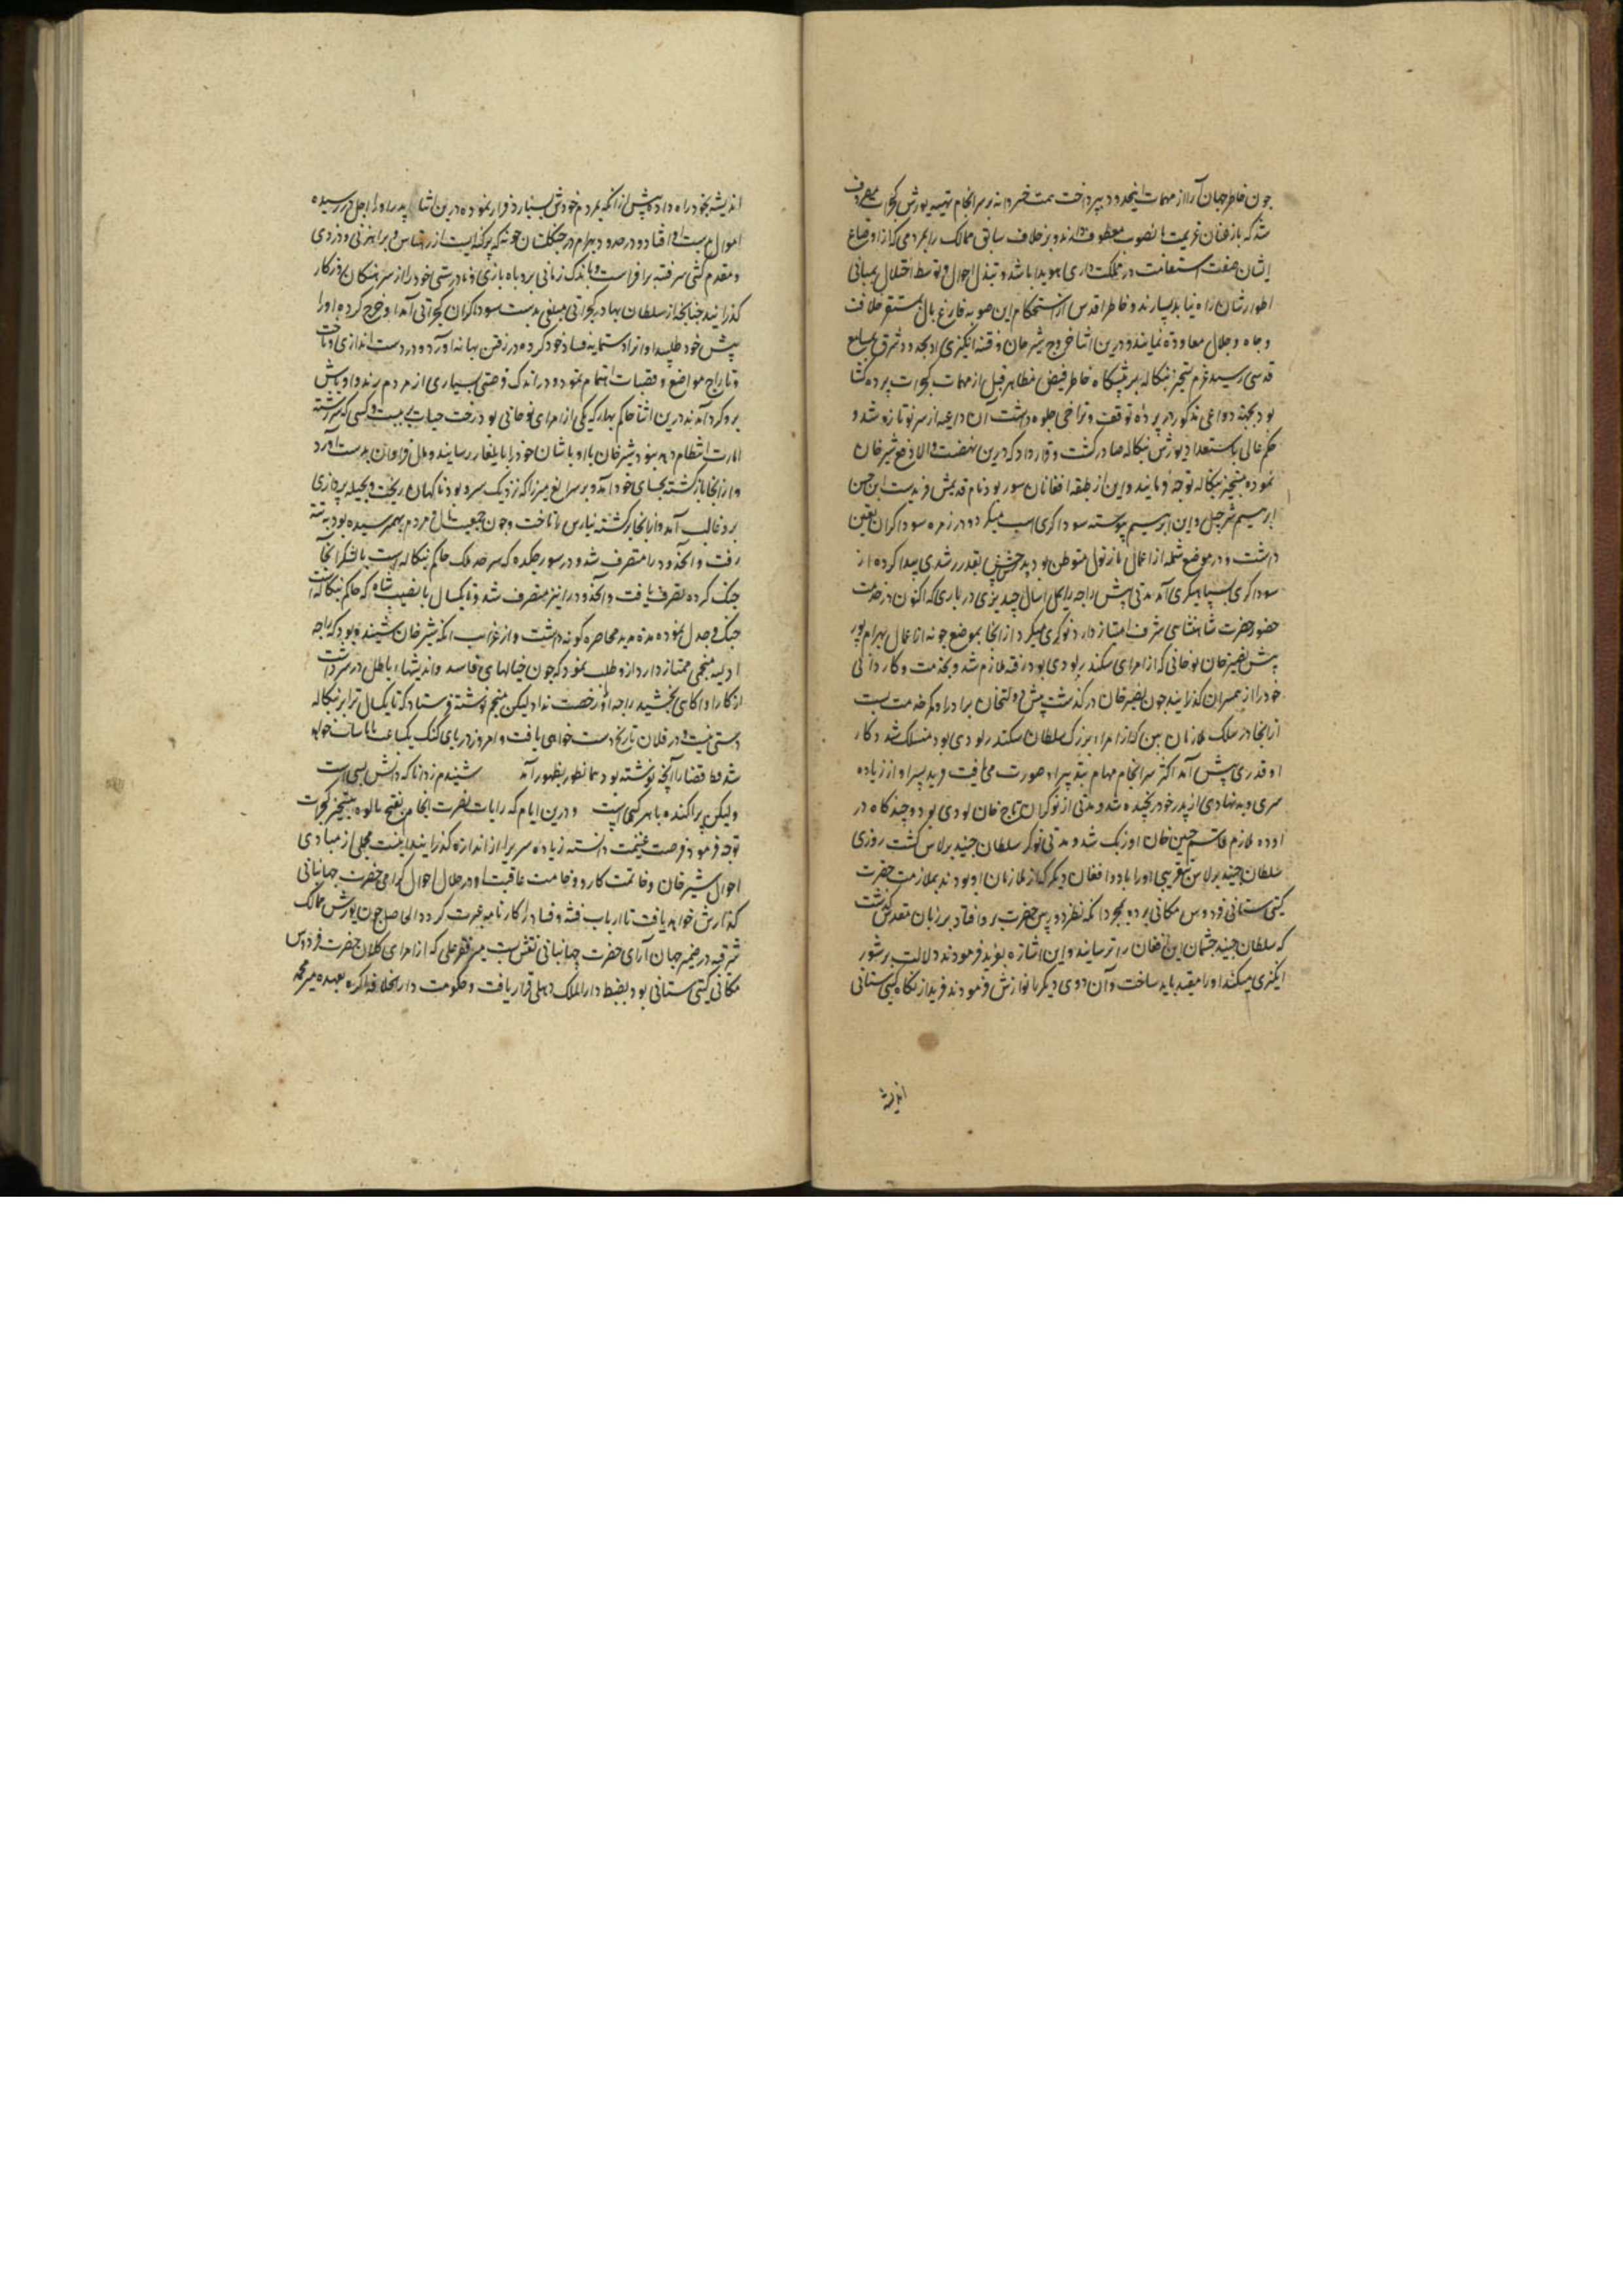 چون خاطر جهان آرا از مهمات اینحدود بپرداخت همت خسروانه بر سرانجام تهیه یورش گجرات مصروف
شد که باز عنان عزیمت بانصوب معطوف دارند و بر خلاف سابق ممالک را بمردمی که از اوضاع
ایشان صفت استقامت در مملکت داری هویدا باشد و تبدل احوال و توسط اختلال بمبانی
اطوار شان راه نیابد بسپارند و خاطر اقدس از استحکام این صوبه فارغ بال بمستقر خلافت
و جاه و جلال معاودت نمایند و درین اثنا خروج شیرخان و فتنه انگیزی او بحدود شرق بمسامع
قدسی رسید عزم تسخیر بنگاله بر پیشگاه خاطر فیض مظاهر قبل از مهمات گجرات پرده گشا
بود بجهة دواعی مذکور در پرده توقف و تراخی جلوه داشت آن داعیه از سر نو تازه شد و
حکم عالی باستعداد یورش بنگاله صادر گشت و قرار داد که درین نهضت والا دفع شیرخان
نموده بتسخیر بنگاله توجه فرمایند و این از طبقه افغانان سور بود نام قدیمش فرید است ابن حسن
ابن ابرهیم شرجیل و این ابرهیم پیوسته سوداگری اسب میکرد و در زمره سوداگران تعین
داشت و در موضع شمله از اعمال نارنول متوطن بود پدرش حسن بقدر رشدی پیدا کرده از
سوداگری بسپاهیگری آمد مدتی پیش راجه رایمل رایسال چند بزی درباری که اکنون در خدمت
حضور حضرت شاهنشاهی شرف امتیاز دارد نوکری میکرد از آنجا بموضع جونه از اعمال سهرام پور
پیش نصیرخان نوحانی که از امرای سکندر لودی بود رفته ملازم شد و بخدمت و کاردانی
خود را از همسران گذرانید چون نصیرخان درگذشت پیش دولتخان برادر او کمر خدمت بست
از آنجا در سلک ملازمان ببن که از امراء بزرگ سلطان سکندر لودی بود منسلک شد و کار
او قدری پیش آمد اکثر سرانجام مهام بتدبیر او صورت می یافت فرید پسر او از زیاده
سری و بد نهادی از پدر خود رنجیده شد و مدتی از نوکران تاج خان لودی بود و چند گاه در
اوده ملازم قاسم حسین خان اوزبک شد و مدتی نوکر سلطان جنید برلاس گشت روزی
سلطان جنید برلاس بتقریبی او را با دو افغان دیگر که از ملازمان او بودند بملازمت حضرت
گیتی ستانی فردوس مکانی برده بمجرد آنکه نظر دوربین حضرت برو افتاد بر زبان مقدس گذشت
که سلطان جنید چشمان این افغان را ترسانند و این اشاره بفرید فرمودند دلالت بر شور
انگیزی میکند او را مقید باید ساخت و آن دوی دیگر را نوازش فرمودند فرید از نگاه گیتی ستانی
اندیشه
اندیشه بخود راه داده پیش از آنکه بمردم خودش بسپارد فرار نموده درین اثنا پدر او را اجل در رسیده
اموال بدست او افتاد و در حدود سهرام در جنگلستان جونه که پرگنه ایست از رهتاس براهزنی و دزدی
و مقدم کشی سر فتنه برافراشت و باندک زمانی بروباه بازی و نادرستی خود را از سرهنگان روزگار
گذرانید چنانچه از سلطان بهادر گجراتی مبلغی بدست سوداگران گجراتی آمد او خرج کرده او را
پیش خود طلبید او آنرا دستمایه فساد خود کرده در رفتن بهانه آورد و دردست اندازی و تاخت
و تاراج مواضع و قصبات اهتمام نمود و در اندک فرصتی بسیاری از مردم رند و اوباش
برو گرد آمدند درین اثنا حاکم بهار که یکی از امرای نوحانی بود رخت حیات بربست و کسی که سررشته
امارت انتظام دهد نبود شیرخان با اوباشان خود را بایلغار رسانید و مال فراوان بدست آورد
و از آنجا بازگشته بجای خود آمد و بر سر الغ میرزا که نزدیک سرو بود ناگهان ریخت و بحیله پردازی
برو غالب آمد و از آنجا برگشته بنارس را تاخت و چون جمعیت مال و مردم بهم رسیده بود به پتنه
رفت و آنحدود را متصرف شد و در سورجگده که سرحد ملک حاکم بنگاله است با لشکر آنجا
جنگ کرده بتصرف یافت و آنحدود را نیز متصرف شد و تا یکسال با نصیب شاه که حاکم بنگاله است
جنگ و جدل نموده مدة مدید محاصره گونه داشت و از غرایب آنکه شیرخان شنیده بود که راجه
اودیسه منجمی ممتاز دارد از و طلب نمود که چون خیالهای فاسد و اندیشهاء باطل در سر داشت
از کار او آگاهی بخشید راجه او را رخصت نداد لیکن منجم نوشته فرستاد که تا یکسال ترا بر بنگاله
دستی نیست و در فلان تاریخ دست خواهی یافت و امروز دریای گنگ یک ساعت پایاب خواهد
شد قضا را آنچه نوشته بود همانطور بظهور آمد شنیدم ز دانا که دانش بسی است
ولیکن پراکنده با هر کسی است و درین ایام که رایات نصرت انجام بفتح مالوه و تسخیر گجرات
توجه فرمود فرصت غنیمت دانسته زیاده سریرا از اندازه گذرانید اینست مجملی از مبادی
احوال شیرخان و خاتمت کار و وخامت عاقبت او در خلال احوال گرامی حضرت جهانبانی
گذارش خواهد یافت تا ارباب فتنه و فساد را کارنامه عبرت گردد الحاصل چون یورش ممالک
شرقیه در ضمیر جهان آرای حضرت جهانبانی نقش بست میر فقر علی که از امرای کلان حضرت فردوس
مکانی گیتی ستانی بود بضبط دار الملک دهلی قرار یافت و حکومت دار الخلافه آگره بعهده میر محمد